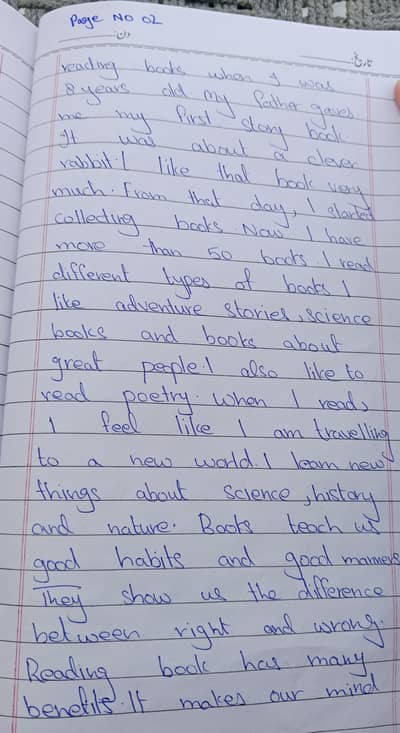 Page No 02
دن:
تاریخ:
reading books when I was
8 years old my father gaves
me my first story book
It was about a clever
rabbit. I like that book very
much. From that day, I started
collecting books. Now I have
more than 50 books. I read
different types of books I
like adventure stories, science
books and books about
great people. I also like to
read poetry. when I read,
I feel like I am travelling
to a new world. I learn new
things about science, history
and nature. Books teach us
good habits and good manners
They show us the difference
between right and wrong.
Reading book has many
benefits. It makes our mind